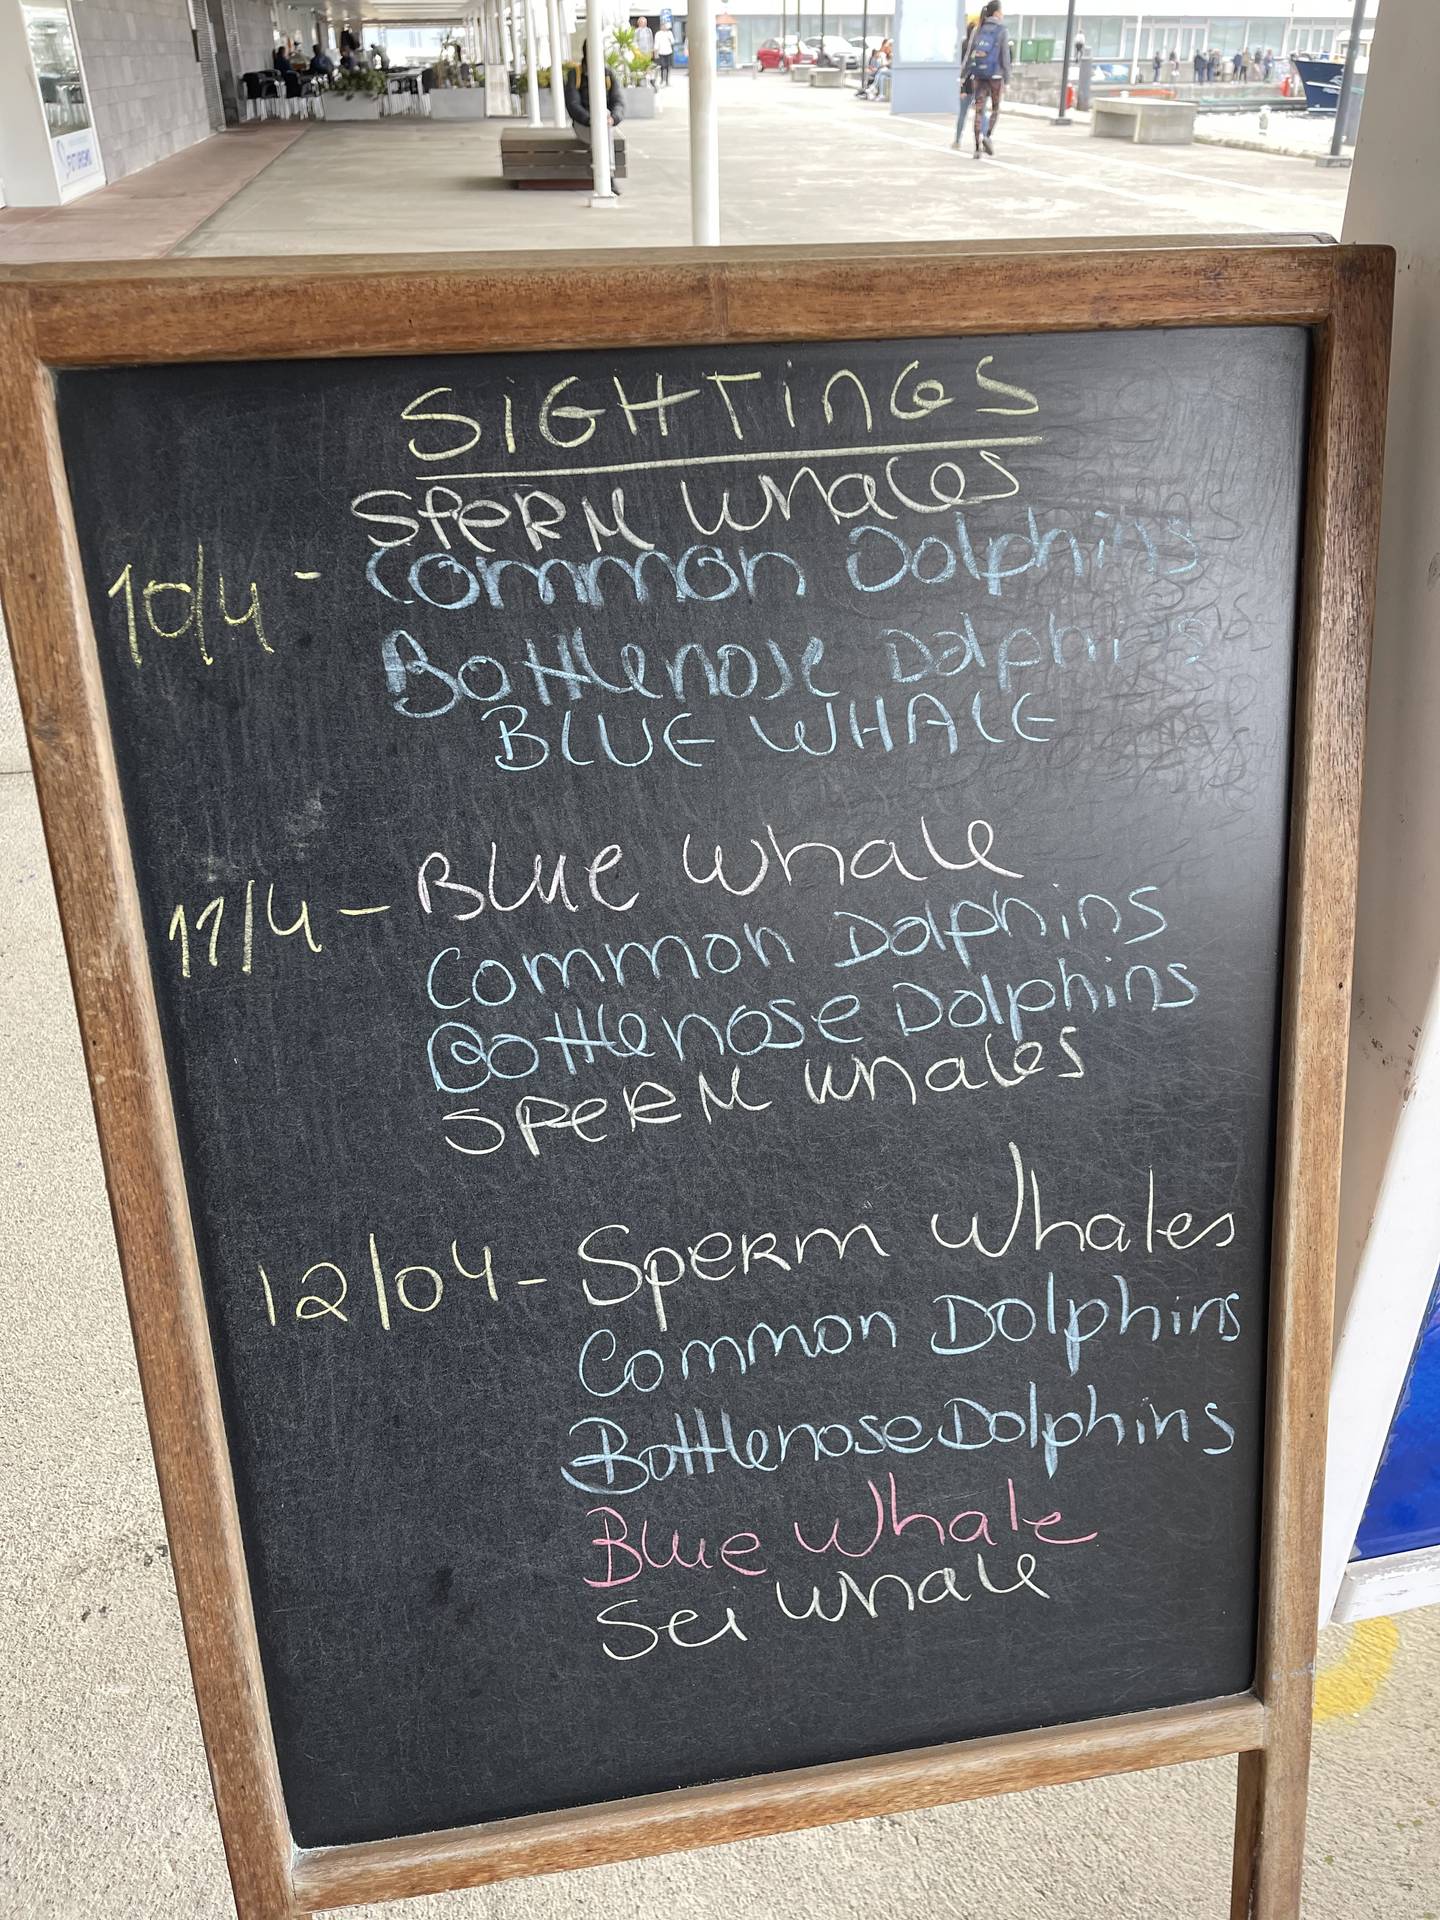 SiGHTinGS
SPeRM Whales
10/4 - Common Dolphins
Bottlenose Dolphins
BLUE WHALE
11/4 - Blue Whale
Common Dolphins
Bottlenose Dolphins
SPeRM Whales
12/04 - Sperm Whales
Common Dolphins
Bottlenose Dolphins
Blue Whale
Sei Whale